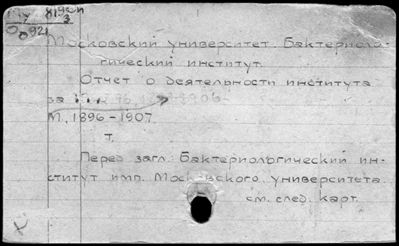 819
3
921
Московский университет. Бактериоло-
гический институт.
Отчет о деятельности института
за
М., 1896-1907.
т.
Перед загл.: Бактериологический ин-
ститут имп. Московского университета.
см. след. карт.